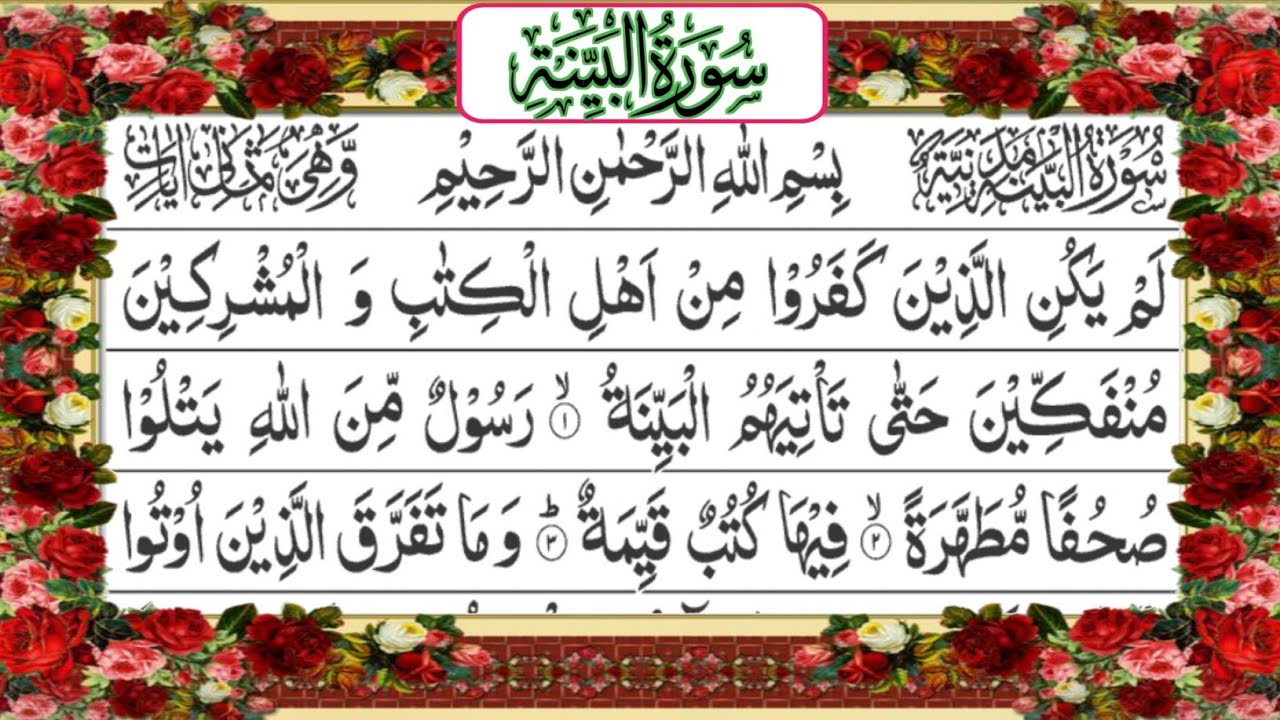 سُورَةُ الْبَيِّنَةِ
سُوْرَةُ الْبَيِّنَةِ مَدَنِيَّةٌ بِسْمِ اللهِ الرَّحْمٰنِ الرَّحِيْمِ وَّهِيَ ثَمَانِيْ اٰيَاتٍ
لَمْ يَكُنِ الَّذِيْنَ كَفَرُوْا مِنْ اَهْلِ الْكِتٰبِ وَ الْمُشْرِكِيْنَ
مُنْفَكِّيْنَ حَتّٰى تَاْتِيَهُمُ الْبَيِّنَةُ ۙ۝۱ رَسُوْلٌ مِّنَ اللهِ يَتْلُوْا
صُحُفًا مُّطَهَّرَةً ۙ۝۲ فِيْهَا كُتُبٌ قَيِّمَةٌ ؕ۝۳ وَ مَا تَفَرَّقَ الَّذِيْنَ اُوْتُوا